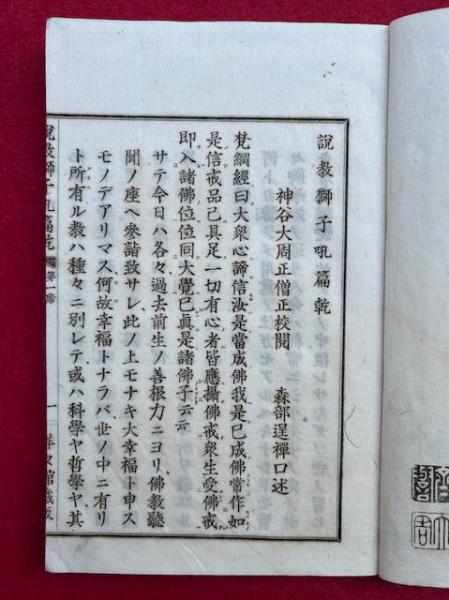 説教獅子吼篇乾
神谷大周正僧正校閲
森部逞禪口述
梵網經曰大衆心諦信汝是當成佛我是已成佛常作如
是信戒品已具足一切有心者皆應攝佛戒衆生受佛戒
即入諸佛位位同大覺已眞是諸佛子云云
サテ今日ハ各々過去前生ノ善根力ニヨリ佛教聽
聞ノ座ヘ參詣致サレ此ノ上モナキ大幸福ト申ス
モノデアリマス何故幸福トナラバ世ノ中ニ有リ
ト所有ル教ハ種々ニ別レテ或ハ科學ヤ哲學ヤ其
説教獅子吼篇乾
第一席
一
館藏版